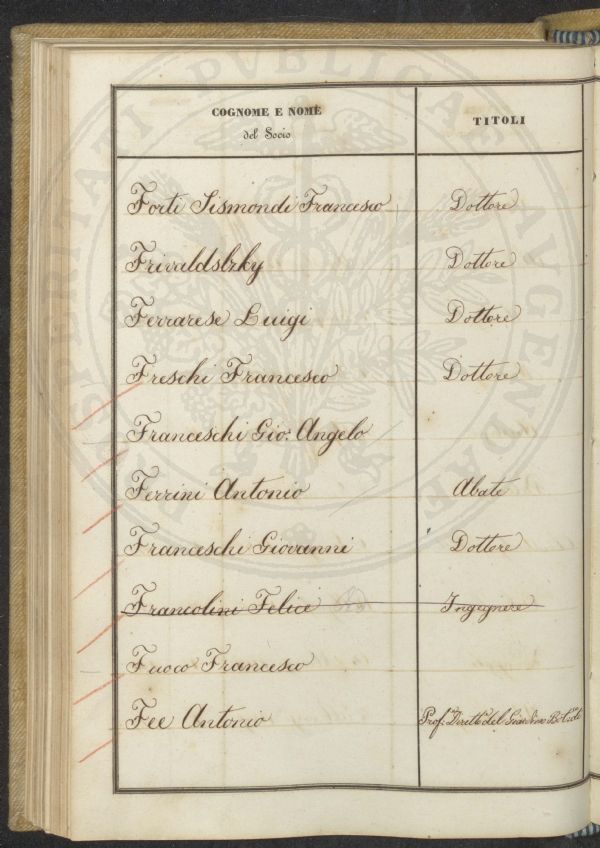 COGNOME E NOME
del Socio
TITOLI
Forti Sismondi Francesco Dottore
Frivaldslzky Dottore
Ferrarese Luigi Dottore
Freschi Francesco Dottore
Franceschi Gio: Angelo
Ferrini Antonio Abate
Franceschi Giovanni Dottore
Francolini Felice Ingegnere
Fuoco Francesco
Fee Antonio Prof: Dirett.e del Giardino
PROSPERITATI PVBLICAE AVGENDAE